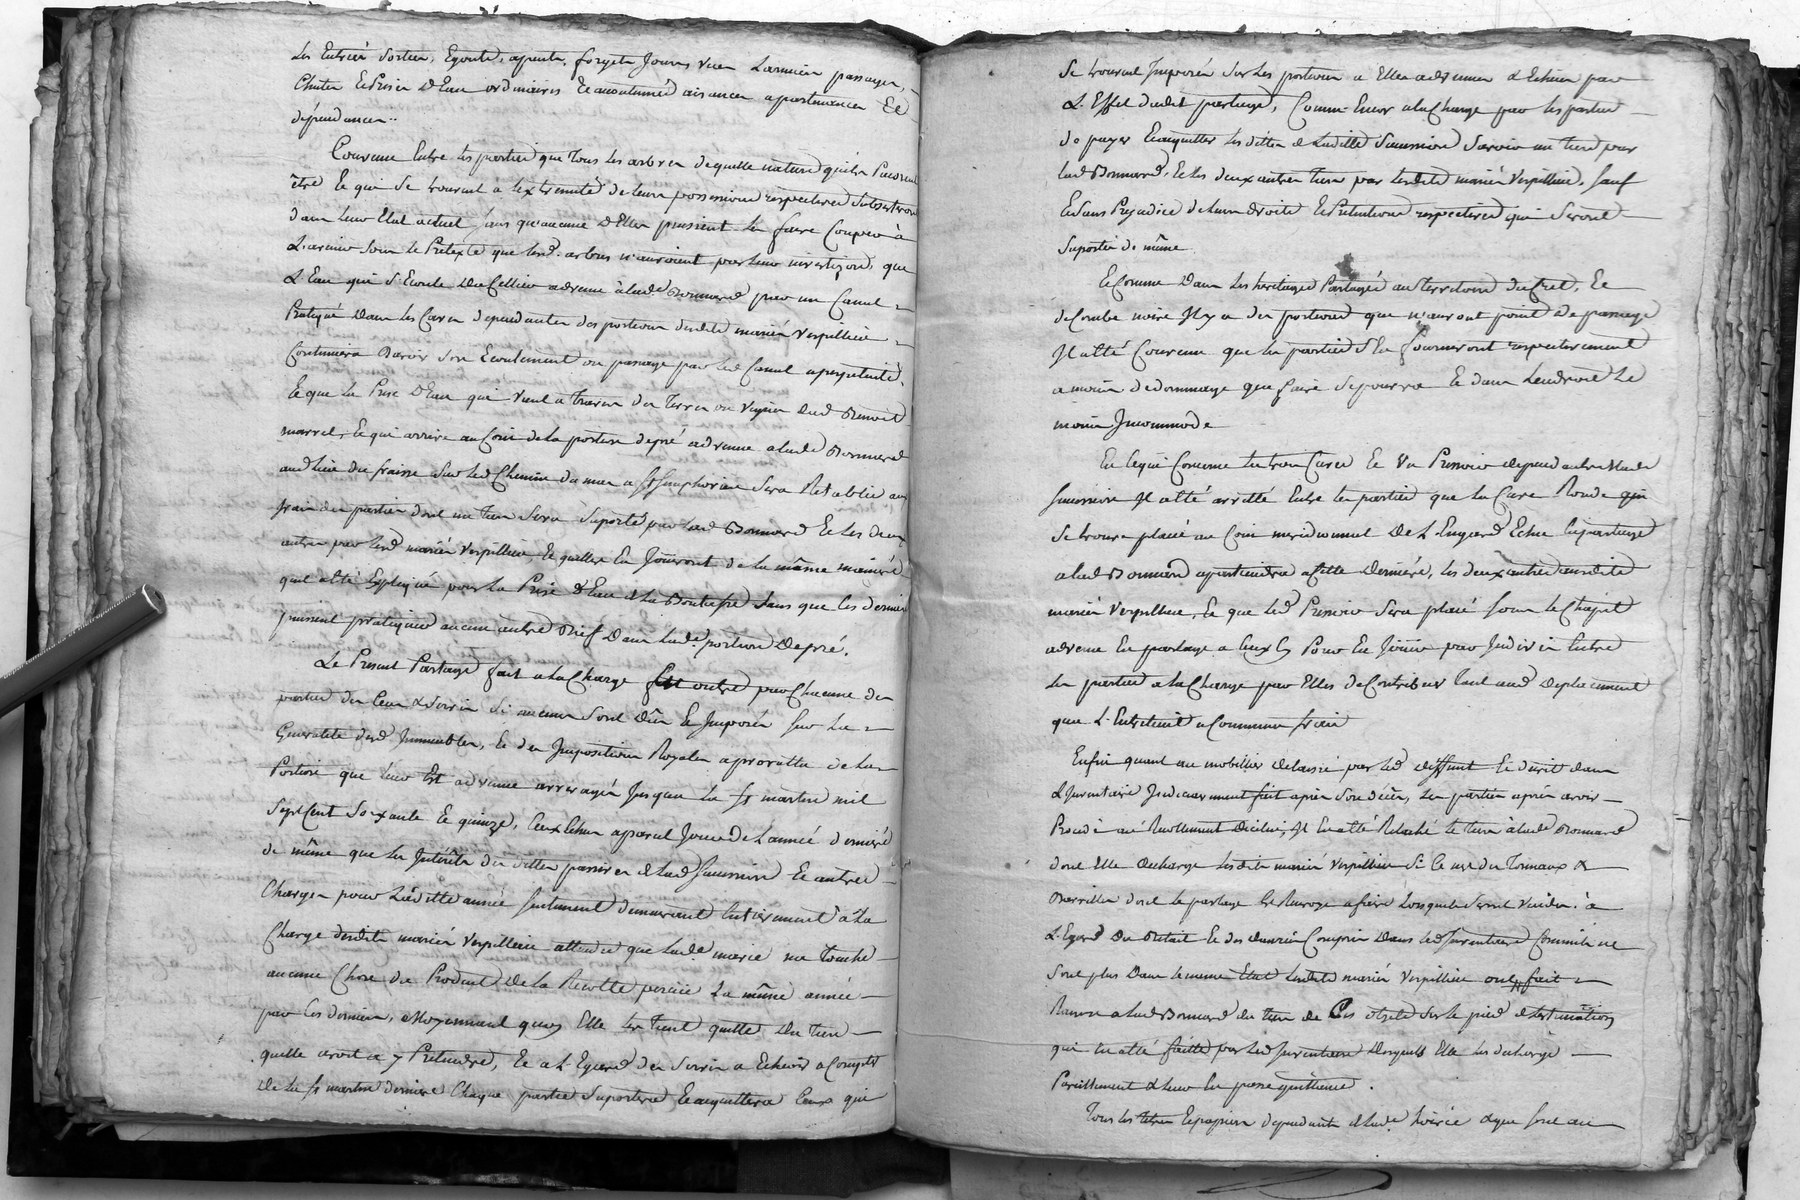 Les Entrées Sorties, Egouts, agouts, forgets Jours vues Larmiers passages,
Chutes et Prises D'Eau ordinaires Et accoutumées aisances apartenances Et
dépendances
Convenu Entre les parties que Tous les arbres de quelle nature qu'ils Puissent
être Et qui Se trouvent a l'extremité de leurs possessions respectives Subsisteront
dans leur Etat actuel, sans qu'aucune D'Elles puissent les faire Couper à
L'avenir sous le Pretexte que lesd. arbres n'auroient pas leur investizon, que
L'Eau qui S'Ecoule Du Cellier advenu à lad.e Bonnard par un Canal
Pratiqué Dans les Caves dépendantes des portions desdits mariés Verpilliere
Continuera D'avoir Son Ecoulement ou passage par led Canal a perpetuité,
Et que la Prise D'Eau qui vient a travers des Terres ou vignes dud Benoit
marrel, Et qui arrive au Coin de la portion de pré advenue a lad.e Bonnard
aud lieu du fraisse Sur led Chemin du mas a St Simphorien Sera Retablie aux
frais des parties dont un Tiers Sera Suporté par lad Bonnard Et les deux
autres par lesd mariés Verpilliere, Et qu'elles En Jouiront de la même maniere
qu'il a été Expliqué pour la Prise D'Eau de la Boutasse Sans que les derniers
puissent pratiquer aucun autre Bief Dans lad.e portion De pré.
Le Present Partage fait a la Charge En outre par Chacune des
parties des Cens & Servis Si aucuns Sont Dûs Et Imposés Sur la
Generalité desd Immeubles, Et des Impositions Royales a proratte de la
Portion que leur Est advenue arreragés Jusques la St martin mil
Sept Cent Soixante Et quinze, Ceux Echus a pareil Jour De L'année derniere
de même que les Intérêts des dettes passives de lad Succession Et autres
Charges pour Ladite année Seulement demeurant Entierement à la
Charge desdits mariés Verpilliere attendu que lad.e marie ne Touche
aucune Chose du Produit De la Recolte perçue La même année
par les derniers, Moyennant quoy Elle les Tient quitte Du Tiers
qu'elle avoit a y Pretendre, Et a L'Egard des Servis a Echeoir a Compter
De la St martin derniere Chaque partie Suportera Et acquittera Ceux qui
Se trouvent Imposés Sur les portions a Elles advenues & Echues par
L'Effet dudit partage, Comme Encor a la Charge par les parties
de payer Et acquitter les dettes de Ladite Succession Savoir un tiers par
lad Bonnard, Et les deux autres Tiers par lesdits mariés Verpilliere, Sauf
Et Sans Prejudice de leurs droits Et Pretentions respectives qui Seront
Suportés de même
Et Comme Dans les heritages Partagés au Territoire du Cret, Et
de Combe noire Il y a des portions que n'auront point De passage
Il a été Convenu que les parties S'En fourniront respectivement
a moins de dommage que faire Se pourra Et dans L'endroit Le
moins Incommode
En Ce qui Concerne les trois Cuves Et Un Pressoir dependants de lad.e
Succession Il a été arretté Entre les parties que la Cuve Ronde qui
Se trouve placée au Coin meridionnal De L'Engard Echue En partage
a lad Bonnard apartiendra a Cette Derniere, les deux autres auxdits
mariés Verpilliere, Et que led Pressoir Sera placé Sous le Chapit
advenu En partage a Ceux Cy Pour En Jouir par Indivis Entre
les parties a la Charge par Elles de Contribuer Tant aud Deplacement
que L'Entretient a Communs frais
Enfin quant au mobilier delaissé par led deffunt Et décrit dans
L'Inventaire Judiciairement fait après Son décès, Les parties après avoir
Procedé au Recollement D'icelui, Il En a été Relaché le tiers à lad.e Bonnard
dont Elle Décharge Lesdits mariés Verpilliere Si Ce n'est des Tonneaux &
Barrilles dont le partage Et Renvoyé a faire Lorsqu'ils Seront Vuides. à
L'Egard Du Betail Et des denrées Compris Dans led Inventaire Comme ils ne
Sont plus Dans le même Etat Lesdits mariés Verpilliere ont fait
Raison a lad Bonnard du tiers de Ces objets Sur le pied de l'estimation
qui En a été faitte par led Inventaire Desquels Elle les decharge
Pareillement & leur En passe quittance.
Tous les titres Et papiers dependants de lad.e hoirie & que Sont au